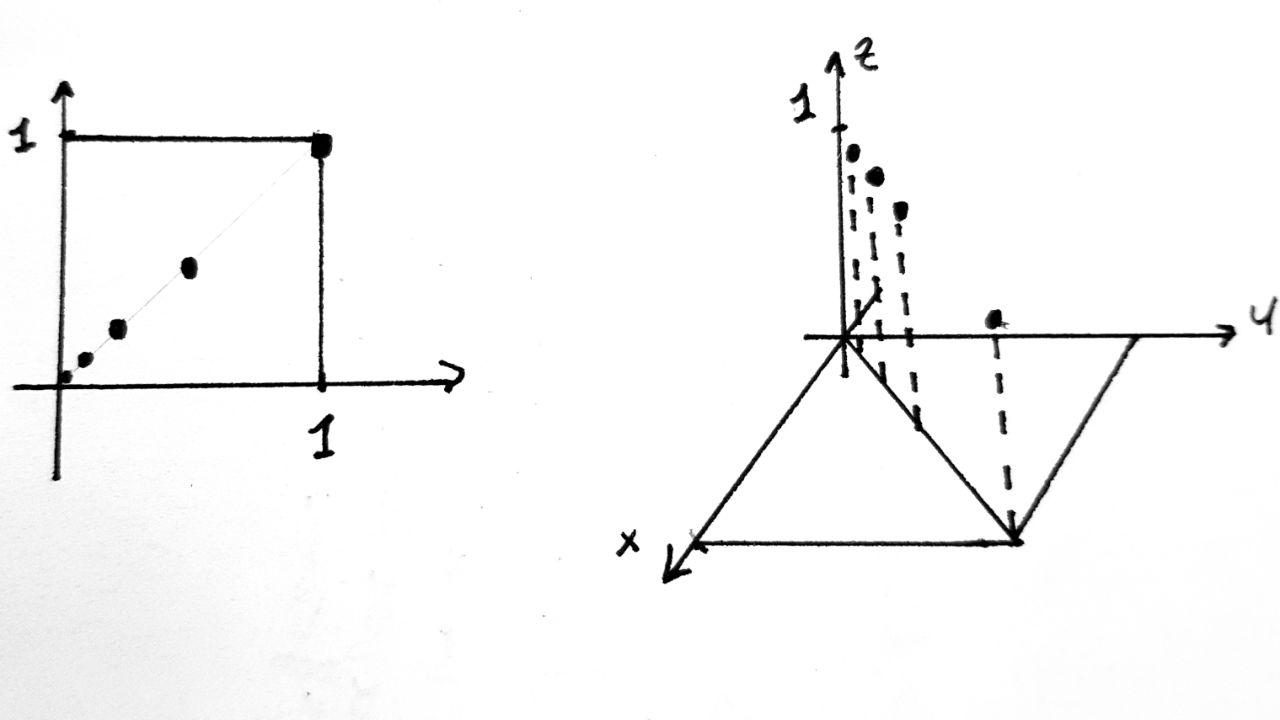 1
1
z
1
y
x